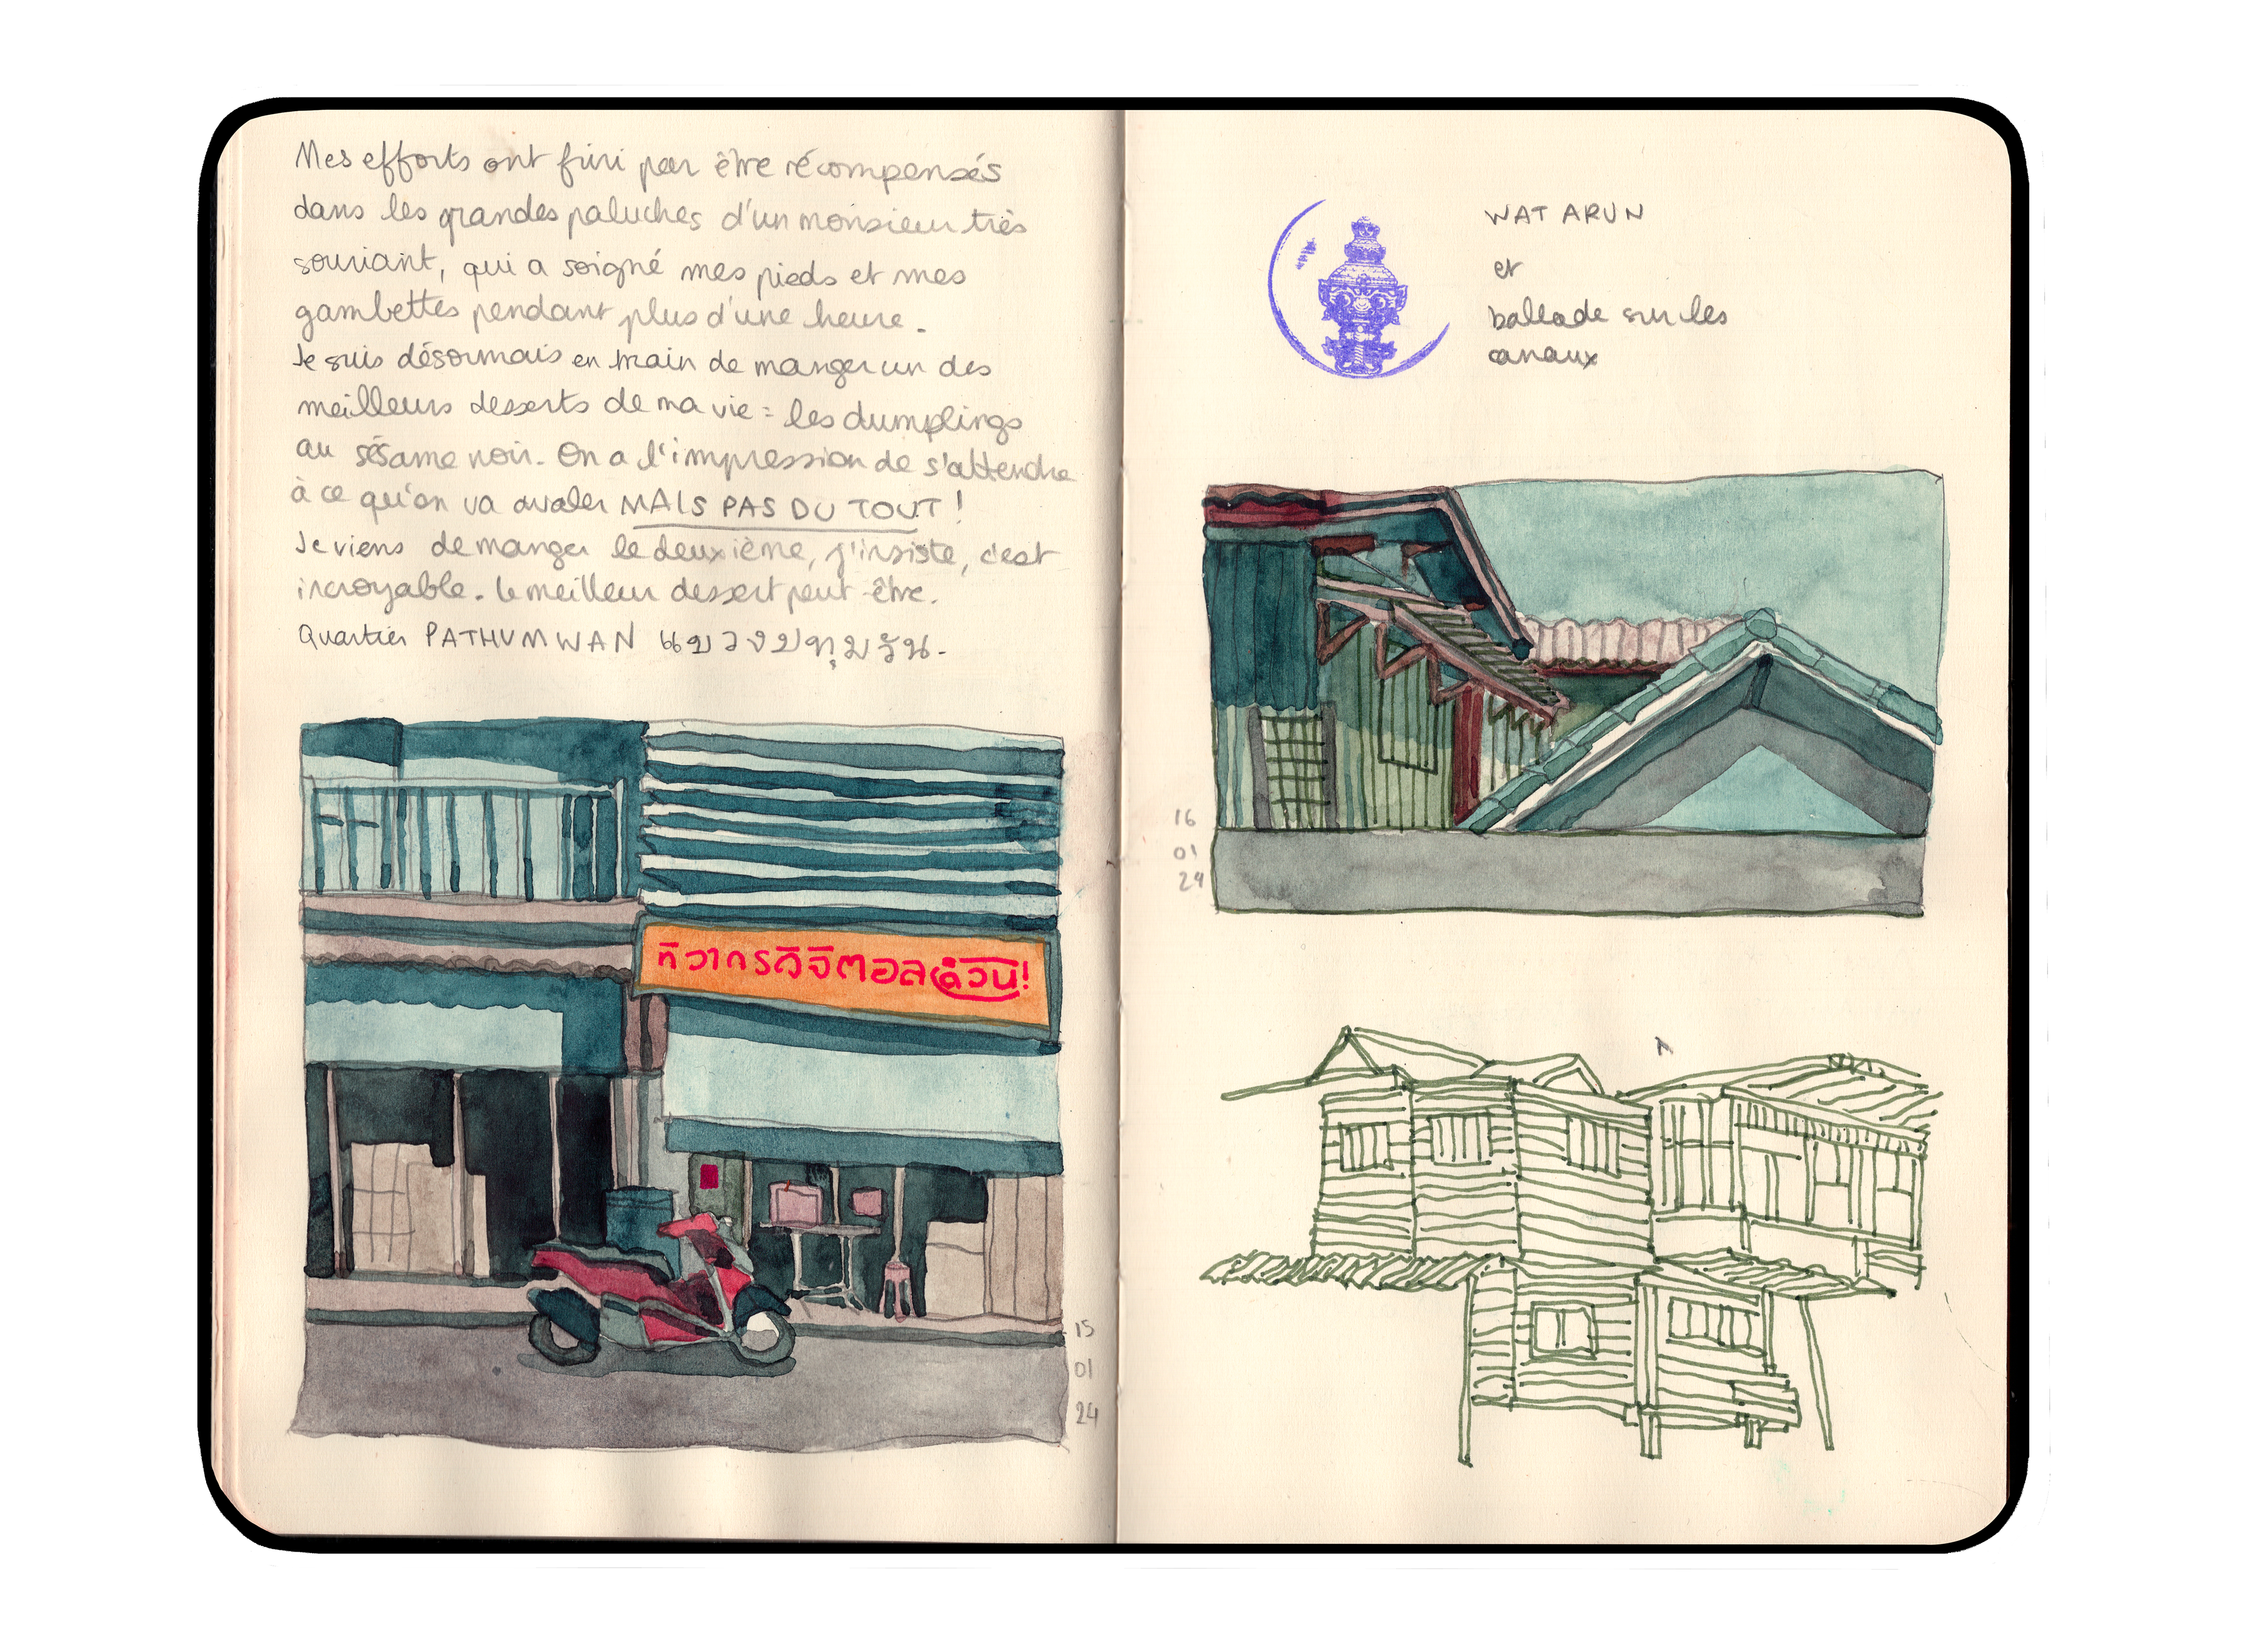 Mes efforts ont fini par être récompensés
dans les grandes paluches d'un monsieur très
souriant, qui a soigné mes pieds et mes
gambettes pendant plus d'une heure.
Je suis désormais en train de manger un des
meilleurs desserts de ma vie : les dumplings
au sésame noir. On a l'impression de s'attendre
à ce qu'on va avaler MAIS PAS DU TOUT !
Je viens de manger le deuxième, j'insiste, c'est
incroyable. Le meilleur dessert peut-être.
Quartier PATHUMWAN แขวงปทุมวัน.
ทิวากรดิจิตอลด่วน!
15
01
24
WAT ARUN
et
ballade sur les
canaux
16
01
24